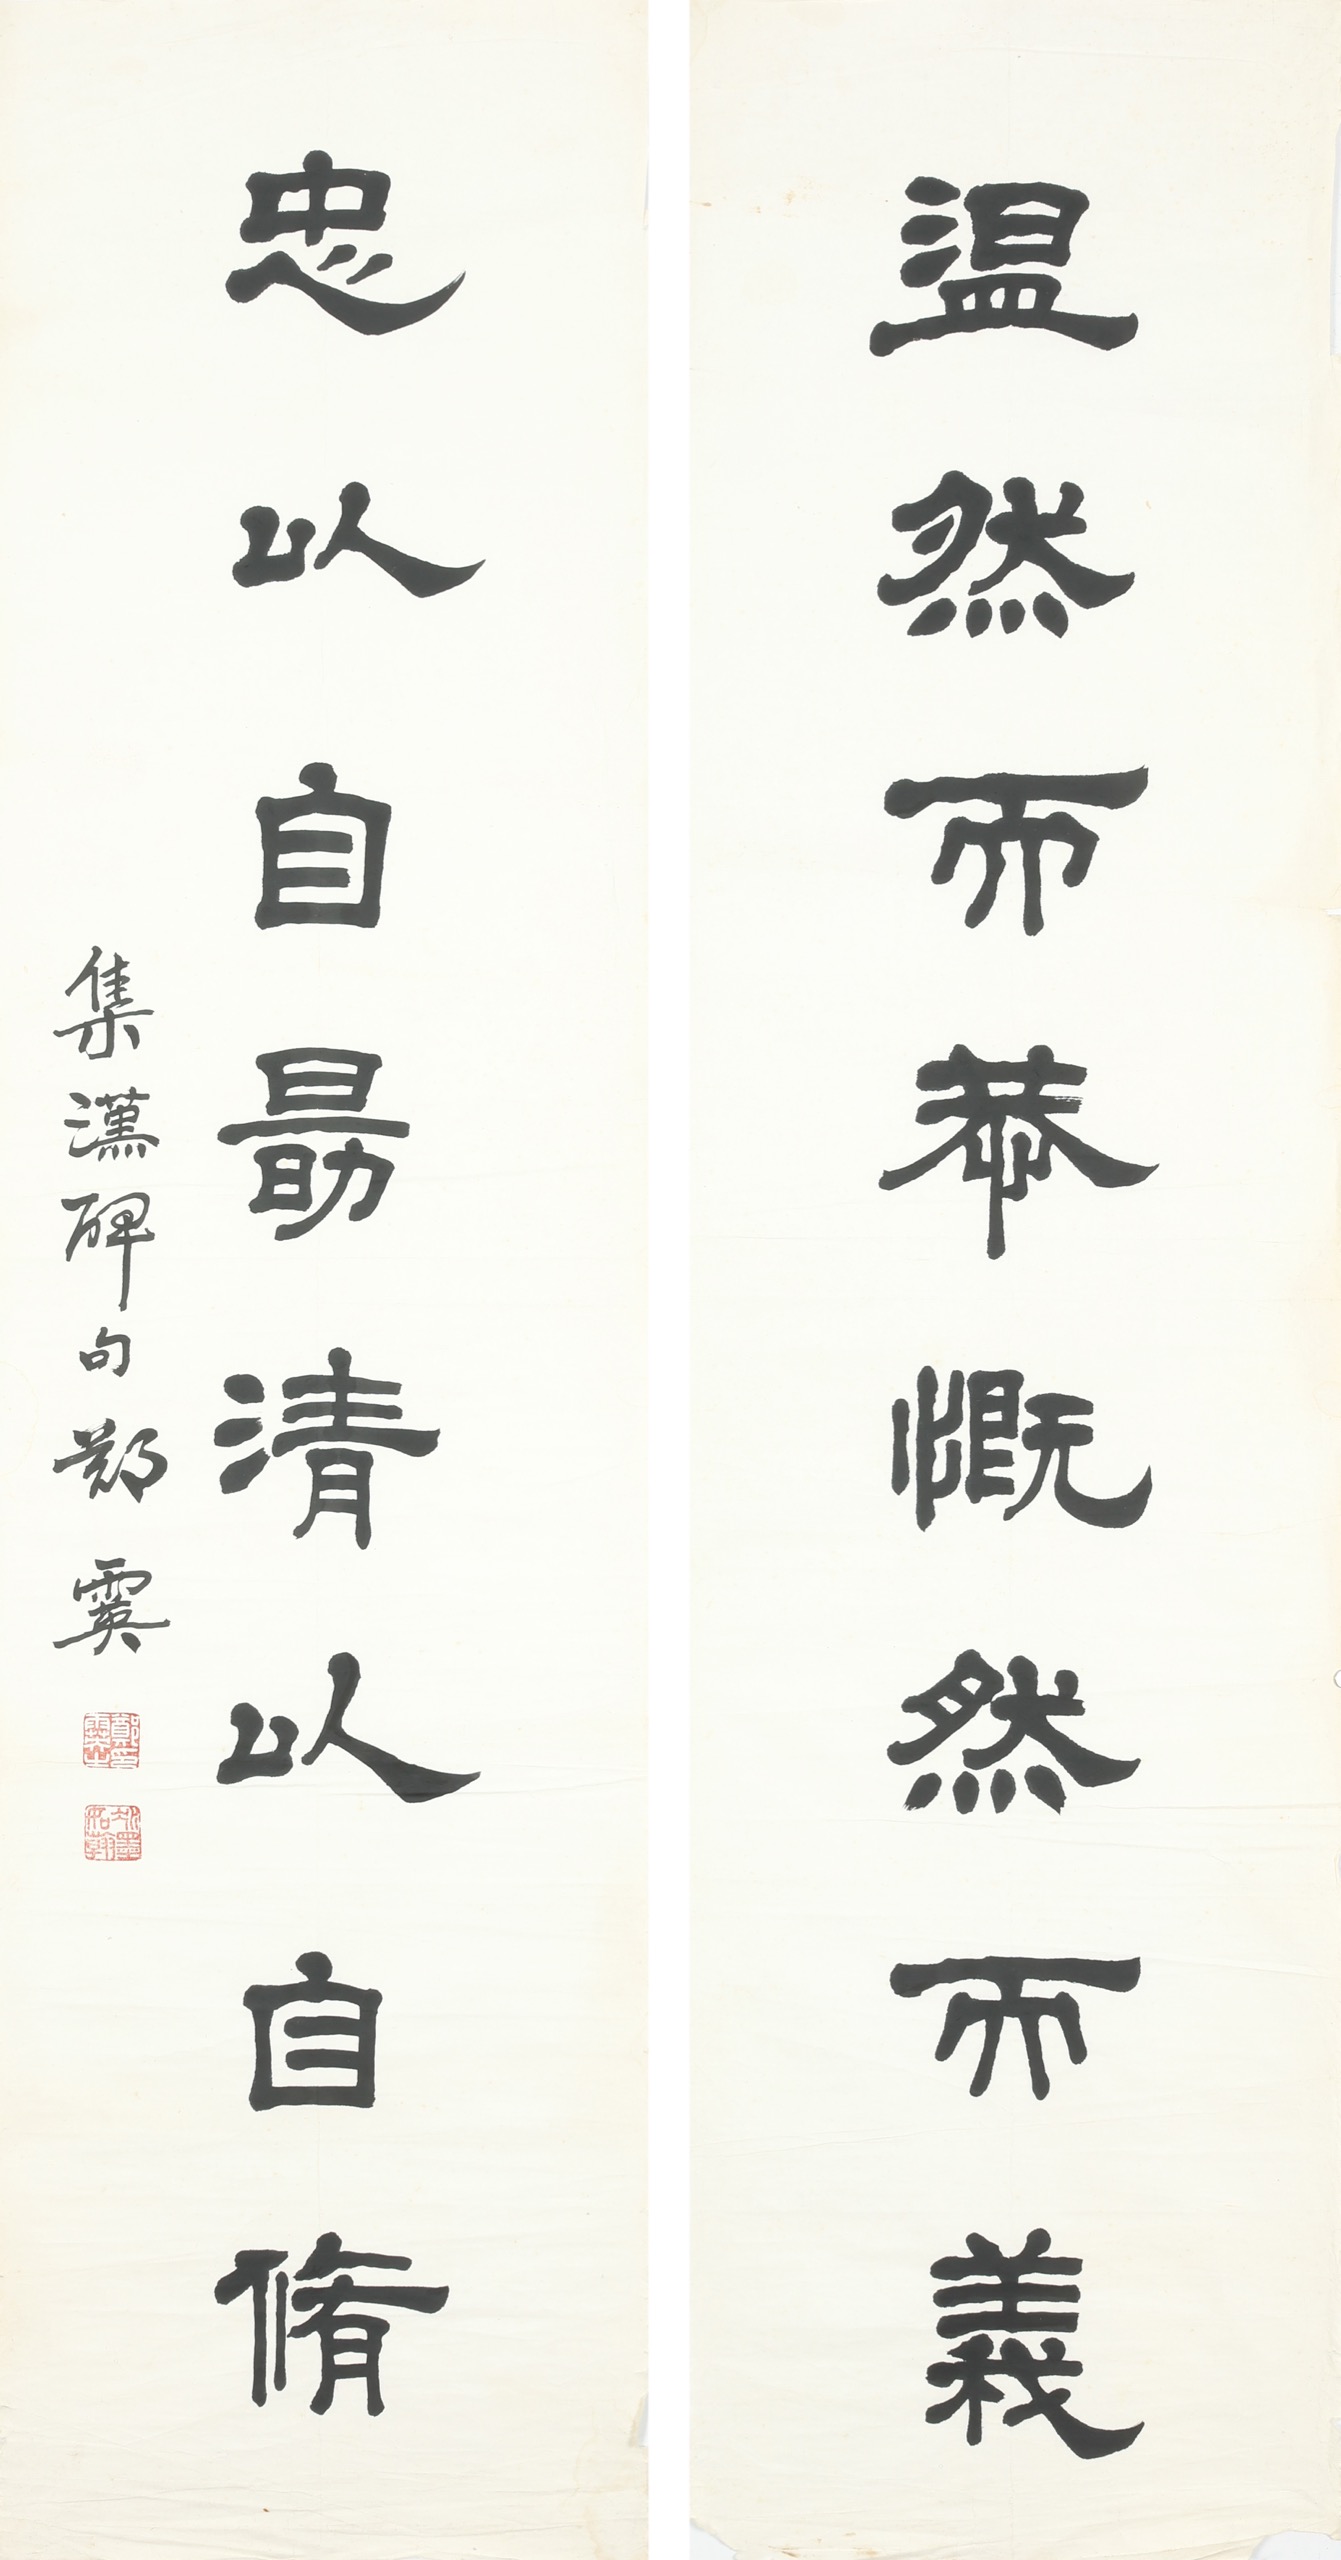 温然而恭慨然而義
忠以自勗清以自脩
集漢碑句鄭霙